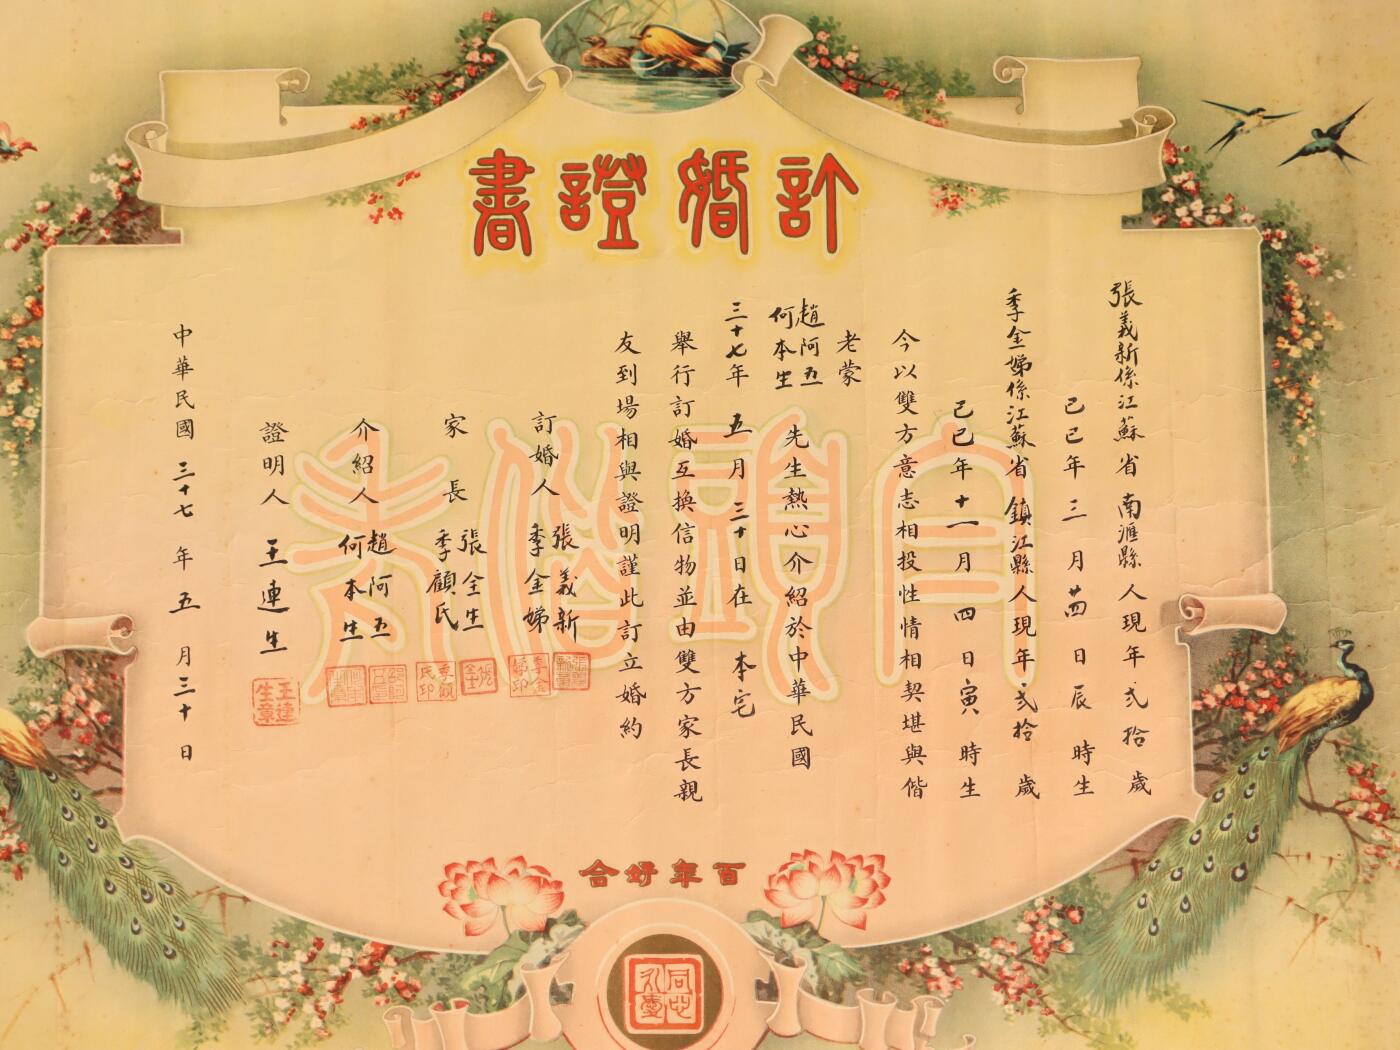 訂婚證書
張義新係江蘇省南滙縣人現年弍拾歲
己巳年三月廿四日辰時生
季金娣係江蘇省鎮江縣人現年弍拾歲
己巳年十一月四日寅時生
今以雙方意志相投性情相契堪與偕
老蒙
趙阿五
何本生
先生熱心介紹於中華民國
三十七年五月三十日在本宅
舉行訂婚互換信物並由雙方家長親
友到場相與證明謹此訂立婚約
訂婚人
張義新
季金娣
家長
張全生
季顧氏
介紹人
趙阿五
何本生
證明人王連生
中華民國三十七年五月三十日
季金娣印
季顧氏印
王連生章
白頭偕老
百年好合
同心永愛